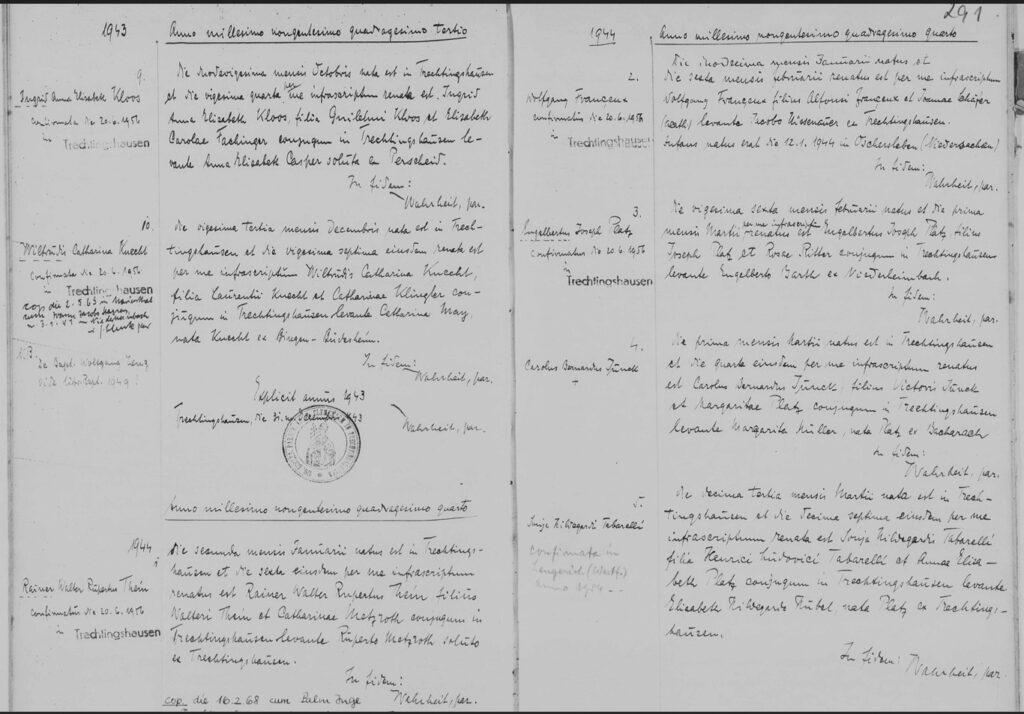 1943
Anno millesimo nongentesimo quadragesimo tertio
9.
Ingrid Anna Elisabeth Kloos
confirmata die 20.6.1956
in Trechtingshausen
Die mensis Octobris nata est in Trechtingshausen
et die vigesima quarta per me infrascriptum renata est Ingrid
Anna Elisabeth Kloos, filia Guilelmi Kloos et Elisabeth
Carolae Fachinger conjugum in Trechtingshausen le-
vante Anna Elisabeth Casper soluta ex Perscheid.
In fidem:
Wahrheit, par.
10.
Wiltrudis Catharina Knecht
confirmata die 20.6.1956
in Trechtingshausen
cop. die 2.8.63 in
N.B.
De Bapt. Wolfgang
vide libr. Bapt. 1949!
Die vigesima tertia mensis Decembris nata est in Trech-
tingshausen et die vigesima septima eiusdem renata est
per me infrascriptum Wiltrudis Catharina Knecht,
filia Laurentii Knecht et Catharinae Klingler con-
jugum in Trechtingshausen levante Catharina May,
nata Knecht ex Bingen-Büdesheim.
In fidem:
Wahrheit, par.
Explicit annus 1943
Trechtingshausen, die 31. Decembris 1943
Wahrheit, par.
Anno millesimo nongentesimo quadragesimo quarto
1944
1.
Rainer Walter Rupertus Thein
confirmatus die 20.6.1956
in Trechtingshausen
Die secunda mensis Januarii natus est in Trechtings-
hausen et die sexta eiusdem per me infrascriptum
renatus est Rainer Walter Rupertus Thein filius
Walteri Thein et Catharinae Metzroth conjugum in
Trechtingshausen levante Ruperto Metzroth soluto
ex Trechtingshausen.
In fidem:
Wahrheit, par.
cop. die 16.2.68 cum Inge
291
1944
Anno millesimo nongentesimo quadragesimo quarto
2.
Wolfgang Franceux
confirmatus die 20.6.1956
in Trechtingshausen
Die duodecima mensis Januarii natus et
die sexta mensis februarii renatus est per me infrascriptum
Wolfgang Franceux filius Alfonsi Franceux et Joannae Schäfer
levante ex Trechtingshausen.
Infans natus erat die 12.1.1944 in Oschersleben (Niedersachsen)
In fidem:
Wahrheit, par.
3.
Engelbertus Joseph Platz
confirmatus die 20.6.1956
in
Trechtingshausen
Die vigesima sexta mensis Februarii natus et die prima
mensis Martii per me infrascriptum renatus est Engelbertus Joseph Platz filius
Joseph Platz et Rosae Ritter conjugum in Trechtingshausen
levante Engelberto Barth ex Niederheimbach.
In fidem:
Wahrheit, par.
4.
Carolus Bernardus Tjunck
+
Die prima mensis Martii natus est in Trechtingshausen
et die quarta eiusdem per me infrascriptum renatus
est Carolus Bernardus Tjunck, filius Victoris Tjunck
et Margaritae Platz conjugum in Trechtingshausen
levante Margarita Müller, nata Platz ex Bacharach
In fidem:
Wahrheit, par.
5.
Sonja Hildegardi Tabarelli
confirmata in
Lengerich (Westf.)
anno 1954
Die decima tertia mensis Martii nata est in Trech-
tingshausen et die decima septima eiusdem per me
infrascriptum renata est Sonja Hildegardi Tabarelli
filia Henrici Ludovici Tabarelli et Annae Elisa-
beth Platz conjugum in Trechtingshausen levante
Elisabeth Hildegarde Kubel nata Platz ex Trechtings-
hausen.
In fidem:
Wahrheit, par.